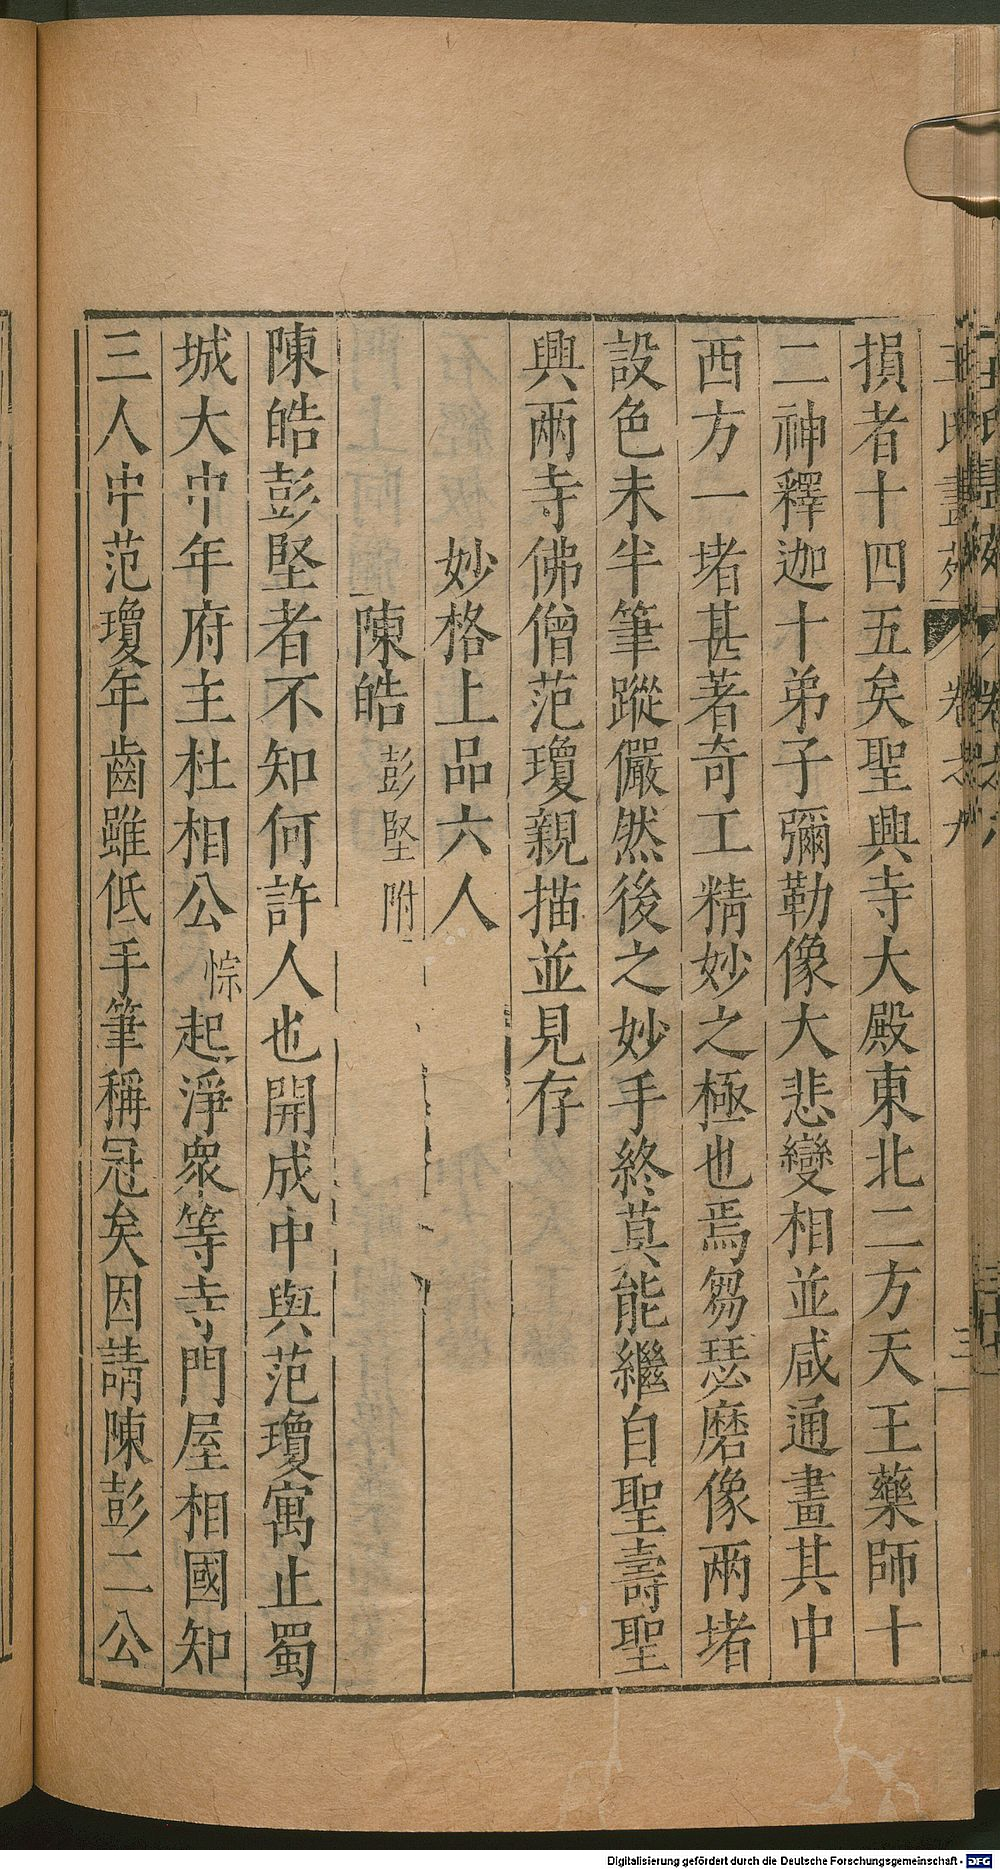 損者十四五矣聖興寺大殿東北二方天王藥師十
二神釋迦十弟子彌勒像大悲變相並咸通畫其中
西方一堵甚著奇工精妙之極也焉芻瑟磨像兩堵
設色未半筆蹤儼然後之妙手終莫能繼自聖壽聖
興兩寺佛僧范瓊親描並見存
妙格上品六人
陳皓 彭堅附
陳皓彭堅者不知何許人也開成中與范瓊寓止蜀
城大中年府主杜相公悰起淨衆等寺門屋相國知
三人中范瓊年齒雖低手筆稱冠矣因請陳彭二公
Digitalisierung gefördert durch die Deutsche Forschungsgemeinschaft - DFG